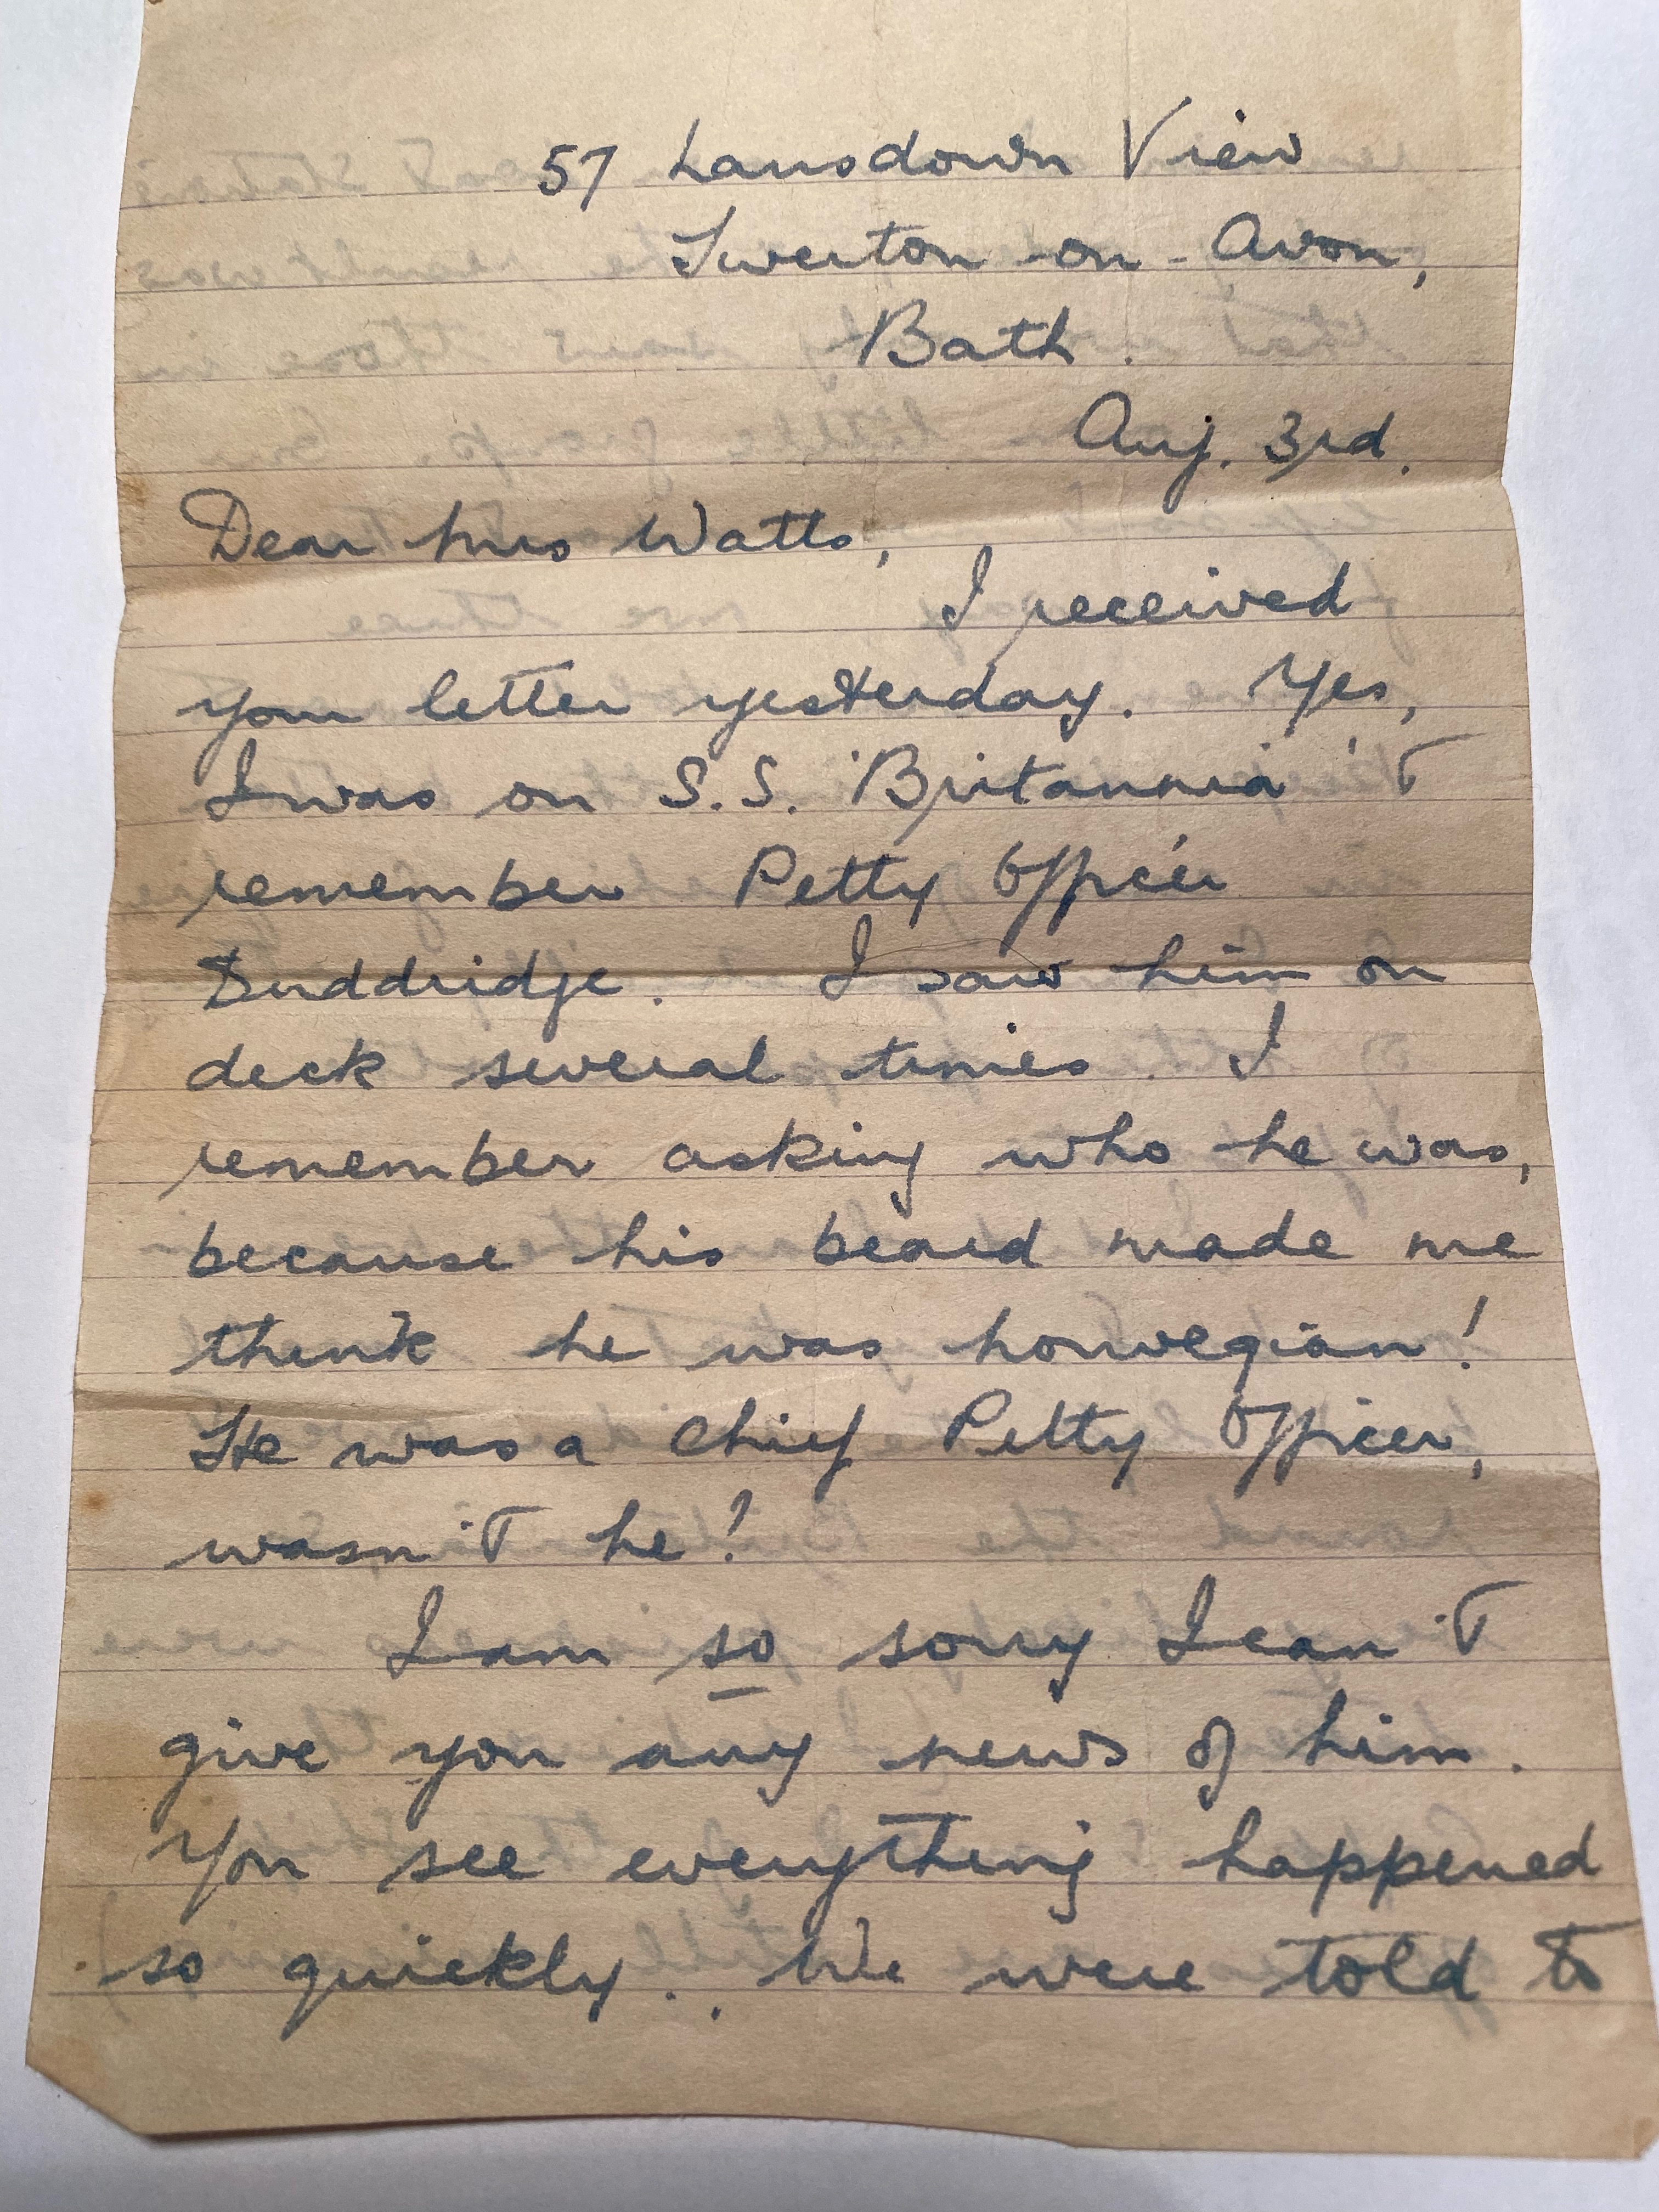 57 Lansdown View
Twerton-on-Avon,
Bath.
Aug. 3rd.
Dear Mrs Watts,
I received
your letter yesterday. Yes,
I was on S.S. 'Britannia' &
remember Petty Officer
Duddridge. I saw him on
deck several times. I
remember asking who he was,
because his beard made me
think he was Norwegian!
He was a Chief Petty Officer,
wasn't he?
I am so sorry I can't
give you any news of him.
You see everything happened
so quickly. We were told to